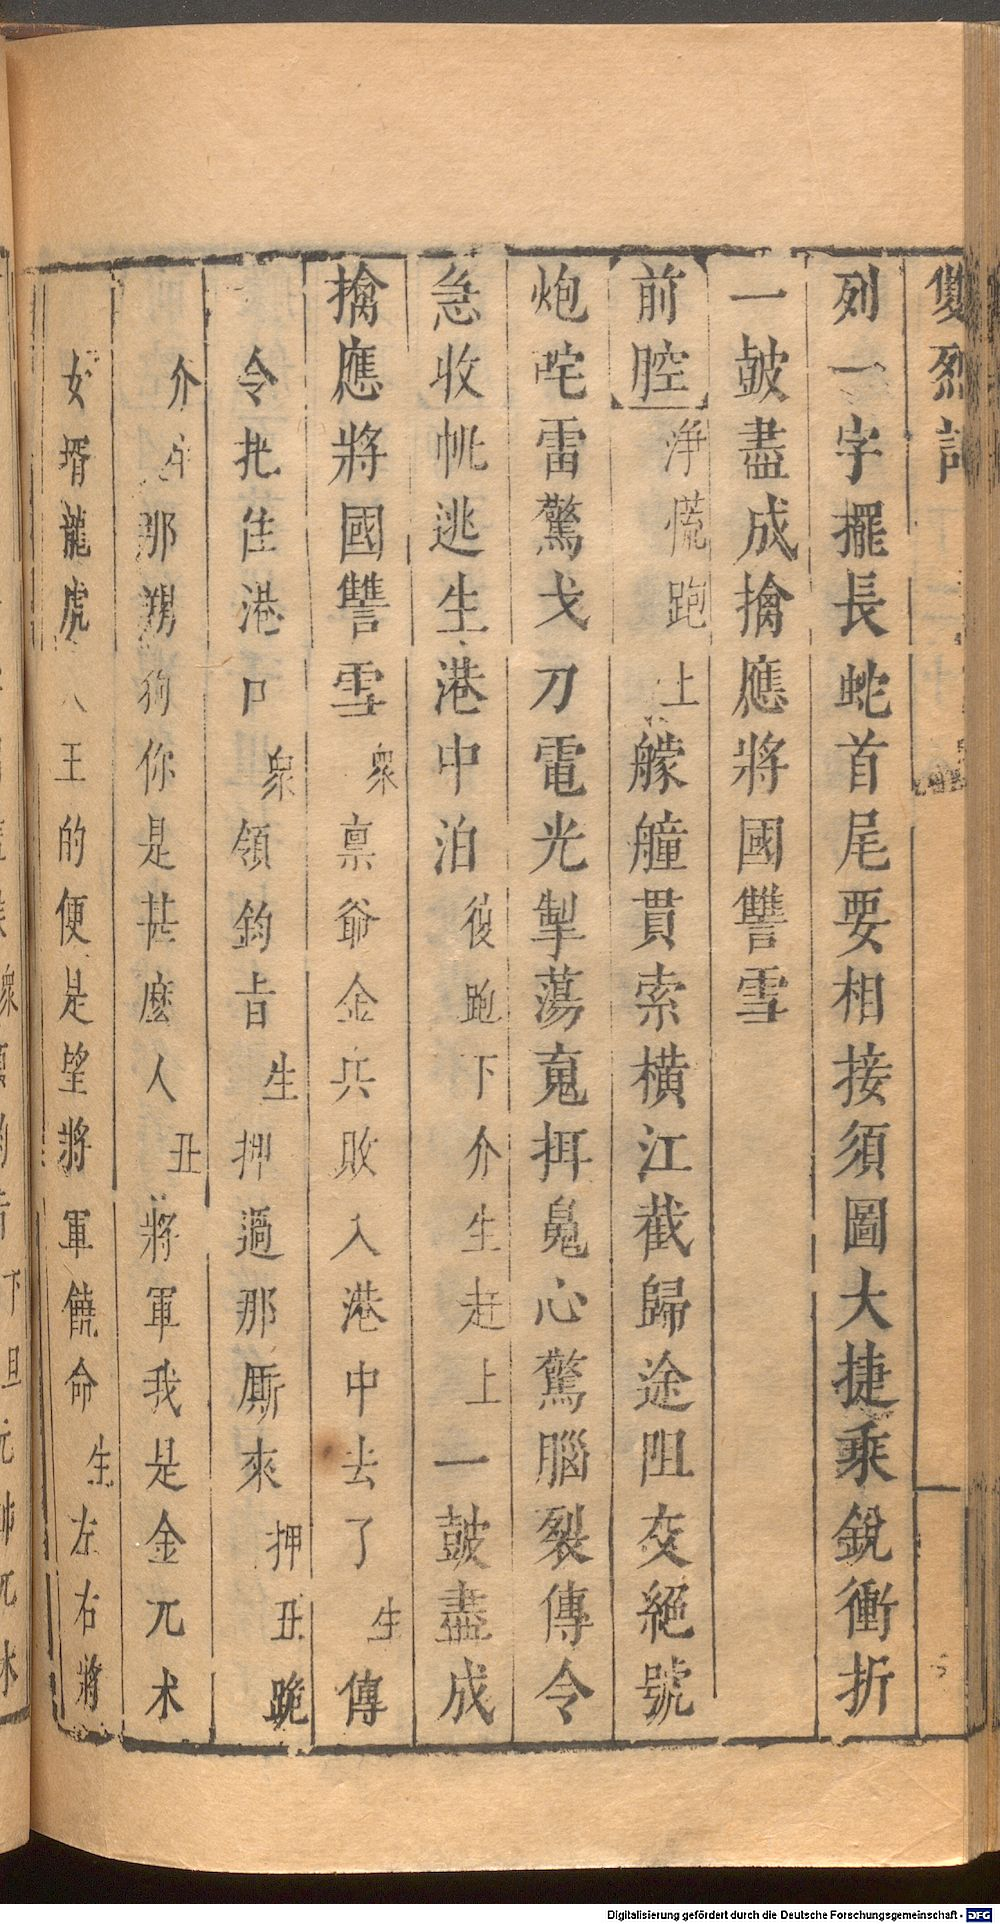 雙烈記
列一字擺長蛇首尾要相接須圖大捷乘銳衝折
一鼓盡成擒應將國讐雪
前腔淨慌跑上艨艟貫索橫江截歸途阻交絕號
炮咤雷驚戈刀電光掣蕩䰟挕鳧心驚腦裂傳令
急收帆逃生港中泊復跑下介生赶上一鼓盡成
擒應將國讐雪衆禀爺金兵敗入港中去了生傳
令把住港口衆領鈞旨生押過那厮來押丑跪
介生那狗你是甚麽人丑將軍我是金兀术
女壻龍虎大王的便是望將軍饒命生左右將
Digitalisierung gefördert durch die Deutsche Forschungsgemeinschaft - DFG